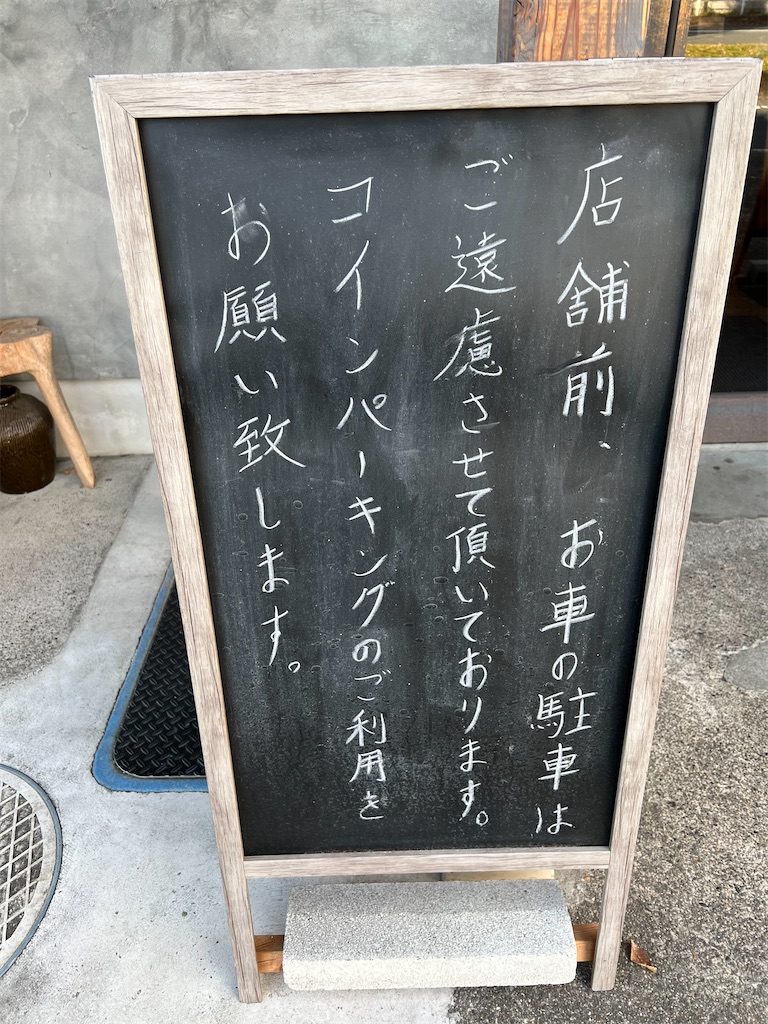 店舗前、お車の駐車は
ご遠慮させて頂いております。
コインパーキングのご利用を
お願い致します。